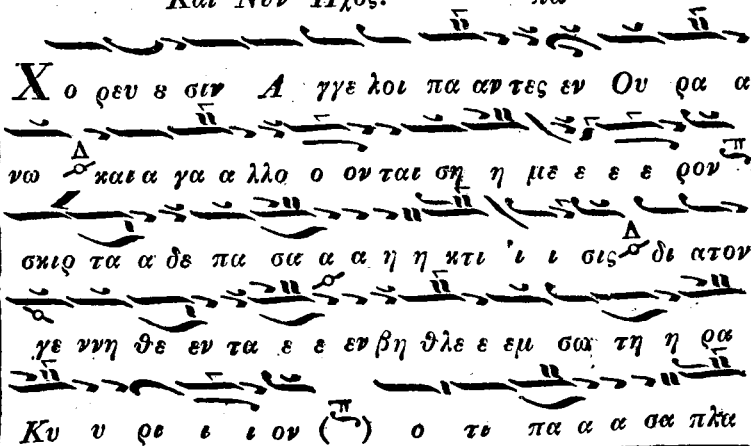 Και Νυν Ηχος. πα
Χ ο ρευ ȣ σιν Α γγε λοι πα αν τες εν Ου ρα α
νω Δ και α γα α λλο ο ον ται ση η με ε ε ε ρον π
σκιρ τα α δε πα σα α α η η κτι ϊ ι σις Δ δι ατον
γε ννη θε εν τα ε ε εν βη θλε ε εμ σω τη η ρα
Κυ υ ρι ι ι ον (π) ο τι πα α α σα πλα